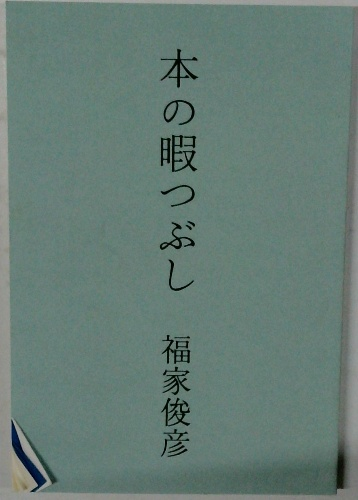 本の暇つぶし　福家俊彦